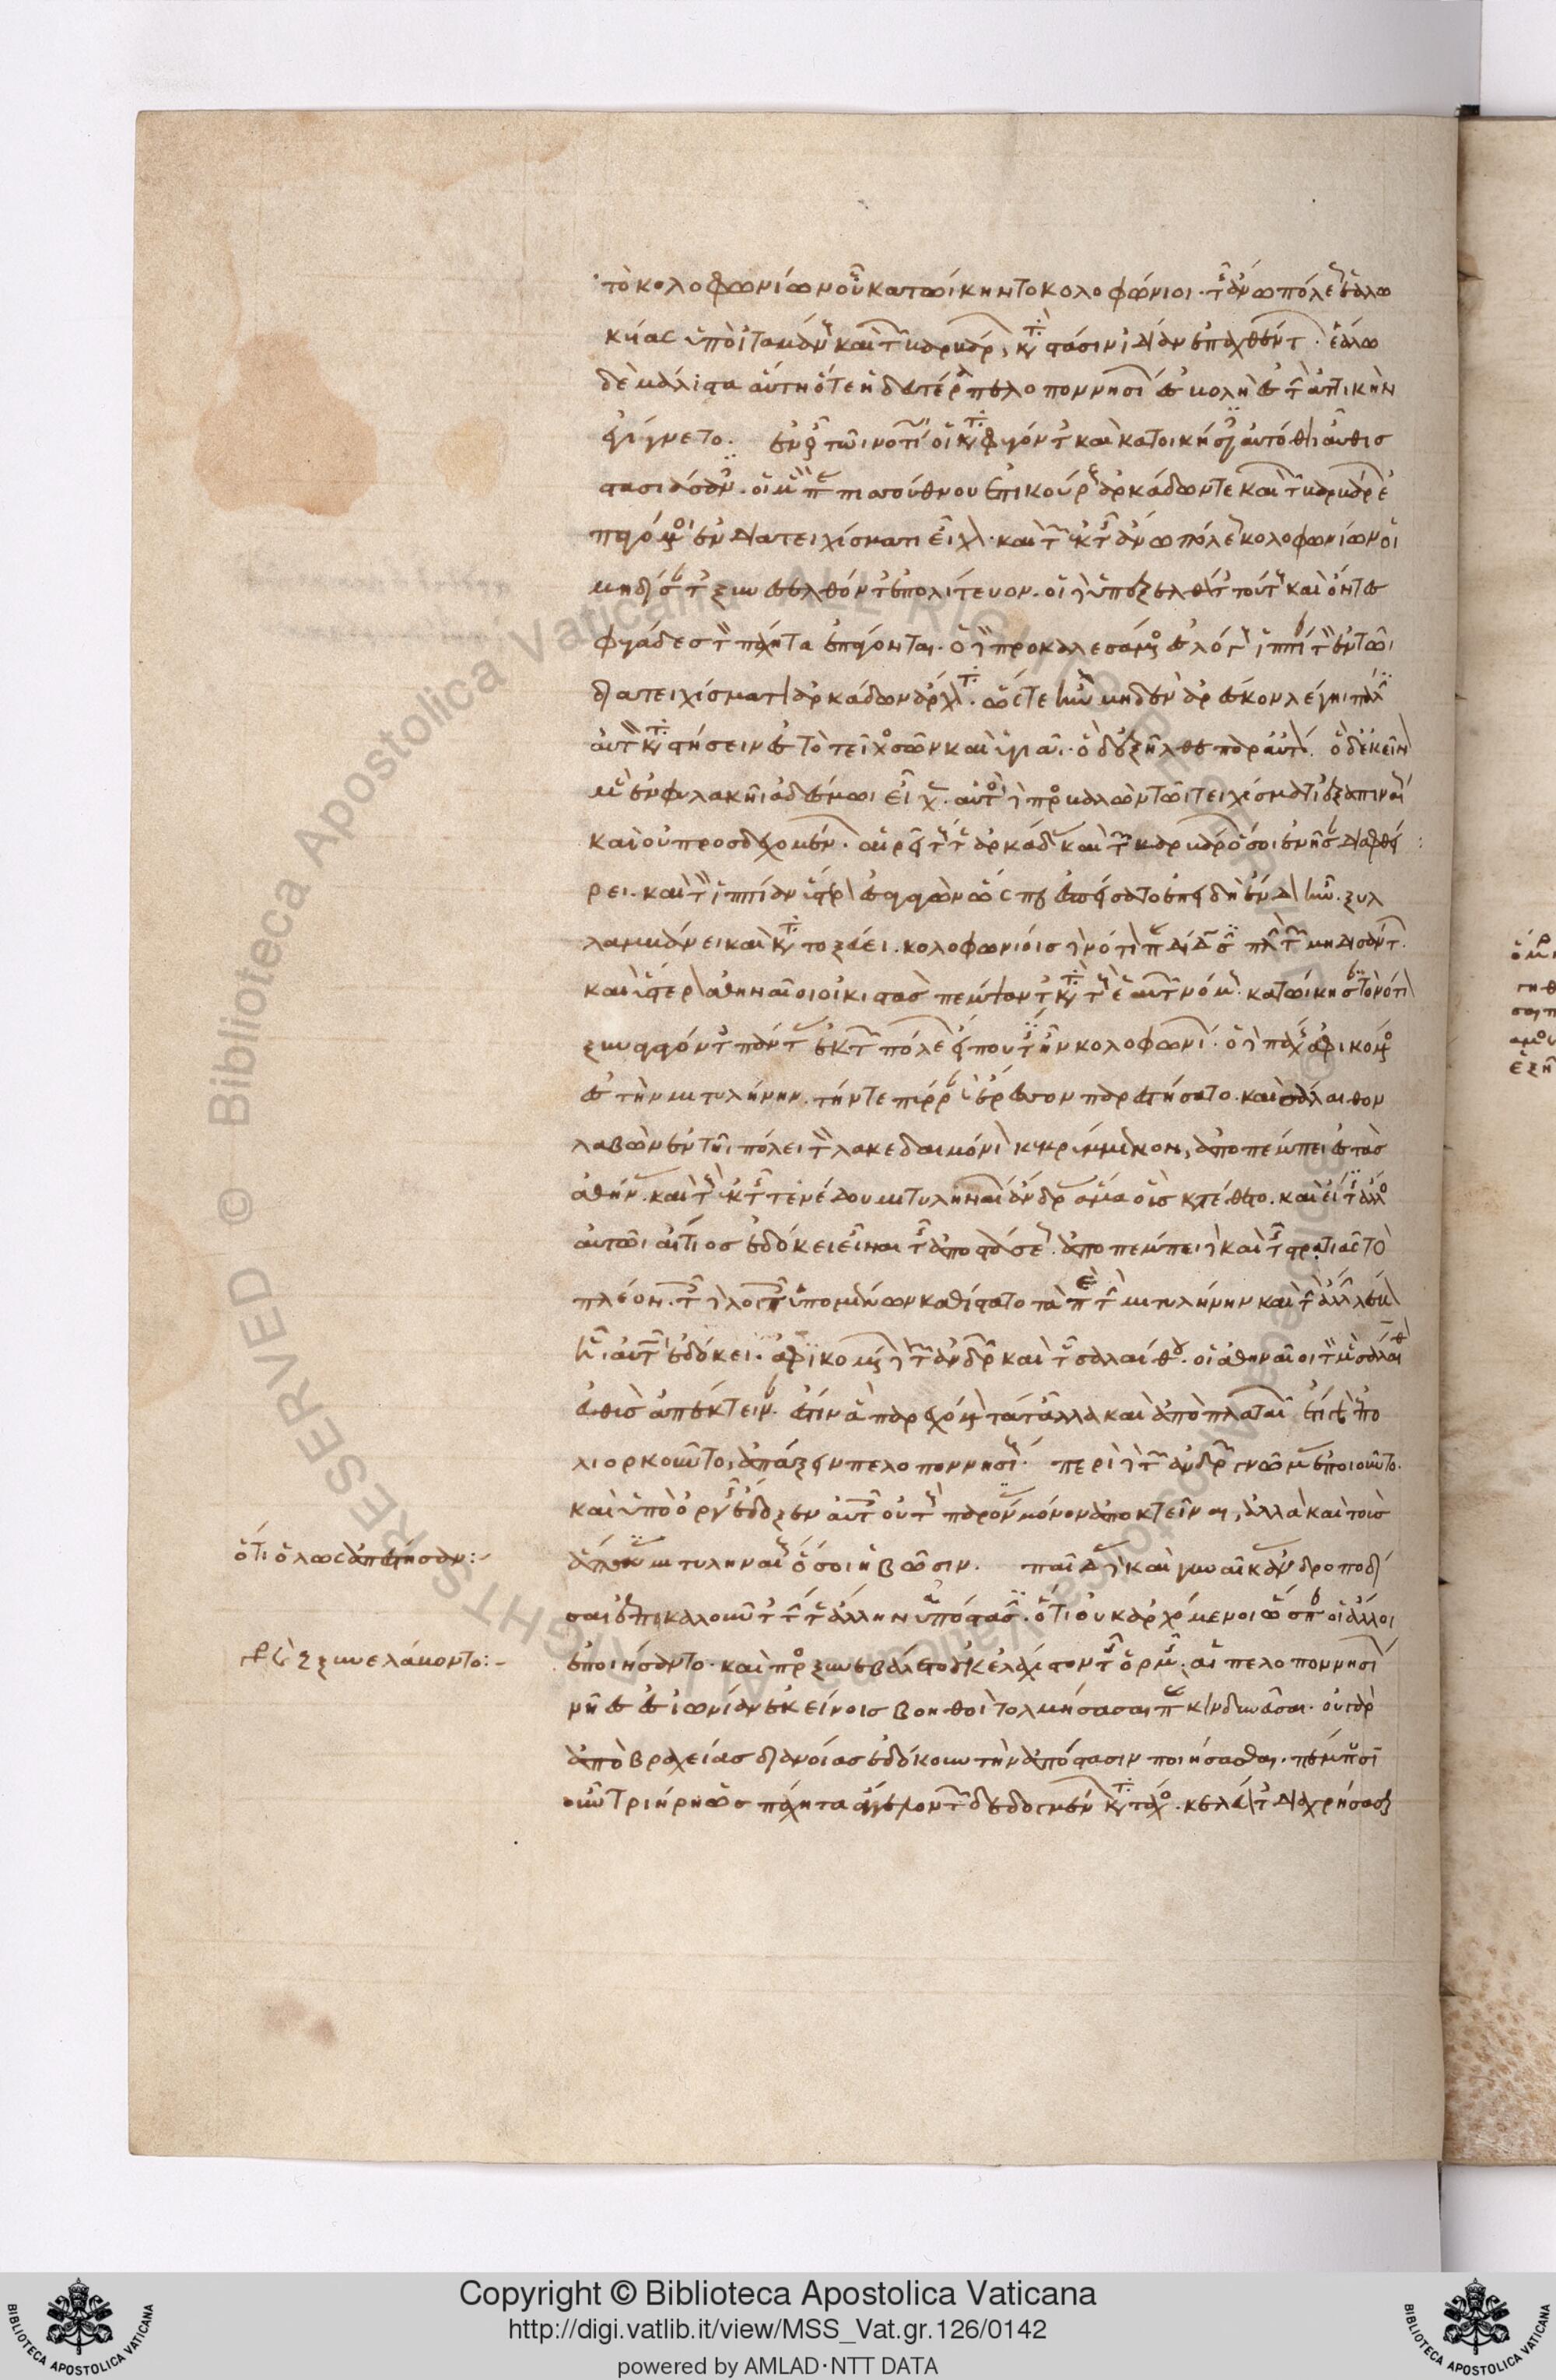 τὸ κολοφωνίων οὗ κατώικηντο κολοφώνιοι· τῆς ἄνω πόλεως ἑαλω
κυίας ὑπὸ ἰταμάνους καὶ τῶν βαρβάρων κατὰ στάσιν ἰδίαν ἐπαχθέντων· ἑάλω
δὲ μάλιστα αὕτη ὅτε ἡ δευτέρα πελοποννησίων ἐσβολὴ ἐς τὴν ἀττικὴν
ἐγίγνετο· ἐν οὖν τῶι νοτίωι οἱ καταφυγόντες καὶ κατοικήσαντες αὐτόθι αὖθις
στασιάσαντες· οἱ μὲν παρὰ πισσούθνου ἐπικούρους ἀρκάδων τε καὶ τῶν βαρβάρων ἐ
παγόμενοι ἐν διατειχίσματι εἶχον· καὶ τῶν ἐκ τῆς ἄνω πόλεως κολοφωνίων οἱ
μηδίσαντες ξυνεσελθόντες ἐπολίτευον· οἱ δὲ ὑπεξελθόντες τούτους καὶ ὄντες
φυγάδες τὸν πάχητα ἐπάγονται· ὁ δὲ προκαλεσάμενος ἐς λόγους ἱππίαν τὸν ἐν τῶι
διατειχίσματι ἀρκάδων ἄρχοντα· ὥστε ἢν μηδὲν ἀρέσκον λέγηι πάλιν
αὐτὸν καταστήσειν ἐς τὸ τεῖχος σῶν καὶ ὑγιᾶ· ὁ δὲ ἐξῆλθε παρ' αὐτόν· ὁ δὲ κεῖνον
μὲν ἐν φυλακῆι ἀδέσμωι εἶχεν· αὐτὸς δὲ προσβαλὼν τῶι τειχίσματι ἐξαπιναίως
καὶ οὐ προσδεχομένων· αἱρεῖ τούς τε ἀρκάδας καὶ τῶν βαρβάρων ὅσοι ἐνῆσαν διαφθεί
ρει· καὶ τὸν ἱππίαν ὕστερον ἐσαγαγὼν ὥσπερ ἐσπείσατο ἐπειδὴ ἔνδον ἦν· ξυλ
λαμβάνει καὶ κατατοξεύει· κολοφωνίοις δὲ νότιον παραδίδωσι πλὴν τῶν μηδισάντων·
καὶ ὕστερον ἀθηναῖοι οἰκιστὰς πέμψαντες κατὰ τοὺς ἑαυτῶν νόμους κατώικησαν τὸ νότιον
ξυναγαγόντες πάντας ἐκ τῶν πόλεων εἴ πού τις ἦν κολοφωνίων· ὁ δὲ πάχης ἀφικόμενος
ἐς τὴν μυτιλήνην· τήν τε πύρραν καὶ ἔρεσον παρεστήσατο· καὶ σάλαιθον
λαβὼν ἐν τῆι πόλει τὸν λακεδαιμόνιον κεκρυμμένον, ἀποπέμπει ἐς τὰς
ἀθήνας· καὶ τοὺς ἐκ τῆς τενέδου μυτιληναίων ἄνδρας ἅμα οὓς κατέθετο· καὶ εἴ τις ἄλλος
αὐτῶι αἴτιος ἐδόκει εἶναι τῆς ἀποστάσεως· ἀποπέμπει δὲ καὶ τῆς στρατιᾶς τὸ
πλέον· τοῖς δὲ λοιποῖς ὑπομένων καθίστατο τὰ περὶ τὴν μυτιλήνην καὶ τὴν ἄλλην λέσβον
ἧι αὐτῶι ἐδόκει· ἀφικομένων δὲ τῶν ἀνδρῶν καὶ τοῦ σαλαίθου· οἱ ἀθηναῖοι τὸν μὲν σάλαιθον
εὐθὺς ἀπέκτειναν· ἔστιν ἃ παρεχόμενον τά τ' ἄλλα καὶ ἀπὸ πλαταιῶν ἔτι γὰρ ἐπο
λιορκοῦντο, ἀπάξειν πελοποννησίους· περὶ δὲ τῶν ἀνδρῶν γνώμας ἐποιοῦντο·
καὶ ὑπὸ ὀργῆς ἔδοξεν αὐτοῖς οὐ τοὺς παρόντας μόνον ἀποκτεῖναι, ἀλλὰ καὶ τοὺς
ὅτι ὅλως ἀπέστησαν:~
ἅπαντας μυτιληναίους ὅσοι ἡβῶσιν· παῖδας δὲ καὶ γυναῖκας ἀνδραποδί
σαι ἐπικαλοῦντες τήν τε ἄλλην ἀπόστασιν· ὅτι οὐκ ἀρχόμενοι ὥσπερ οἱ ἄλλοι
ξυνελάβοντο:~
ἐποιήσαντο· καὶ προσξυνεβάλετο οὐκ ἐλάχιστον τῆς ὁρμῆς· αἱ πελοποννησίων
νῆες ἐς ἰωνίαν ἐκείνοις βοηθοὶ τολμήσασαι παρακινδυνεῦσαι· οὐ γὰρ
ἀπὸ βραχείας διανοίας ἐδόκουν τὴν ἀπόστασιν ποιήσασθαι· πέμπουσιν
οὖν τριήρη ὡς πάχητα ἄγγελον τῶν δεδογμένων κατὰ τάχος· κελεύοντες διαχρήσασθαι
Copyright © Biblioteca Apostolica Vaticana
http://digi.vatlib.it/view/MSS_Vat.gr.126/0142
powered by AMLAD·NTT DATA
BIBLIOTECA APOSTOLICA VATICANA
BIBLIOTECA APOSTOLICA VATICANA